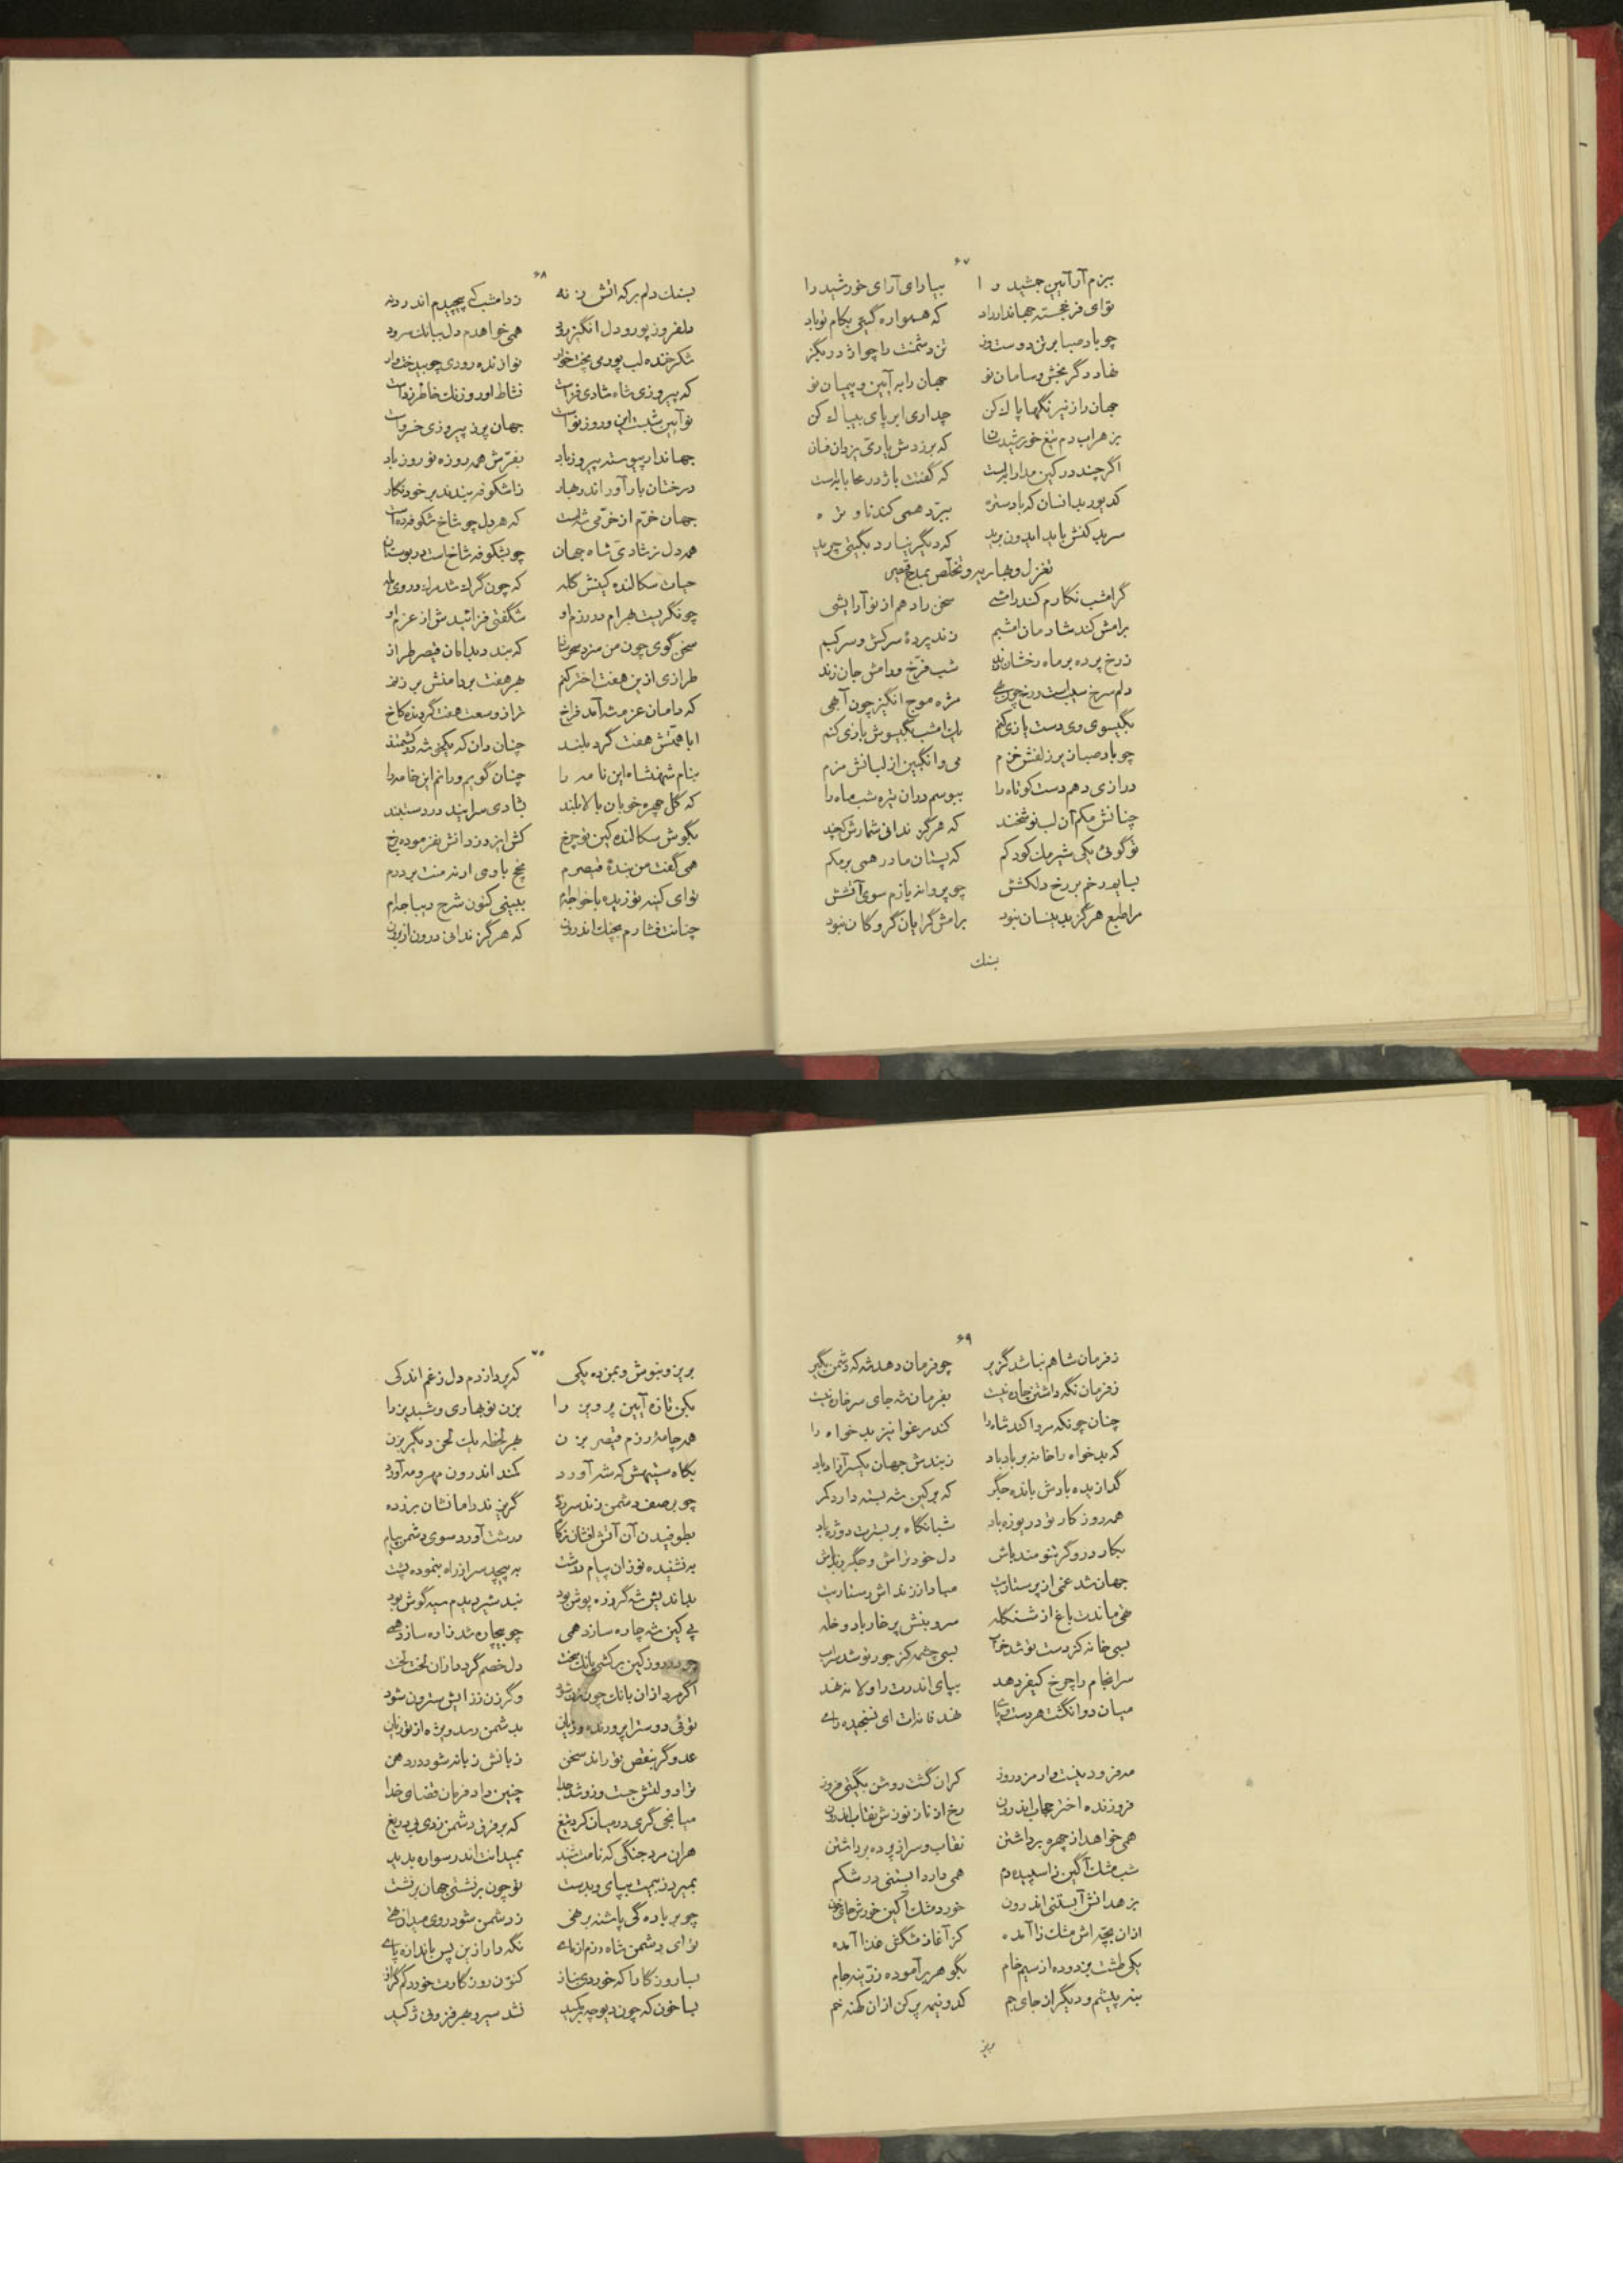 ۶۷
ببزم آر آیین جمشید را بیارای آرای خورشید را
توای فر خجسته جهاندار راد که همواره گیتی بکام تو باد
چو باد صبا بر تن دوست وز تن دشمنت را چو آذر بگز
نهاد دگر بخش و سامان نو جهان را به آیین و پیمان نو
جهان را ز نیرنگها پاک کن
بزهراب دم تیغ خورشید سا که برزدش یاری یزدان فسان
اگر چند در کین مدارا بهست که گفتت باژدرعا با بهست
سر بد کنش باید ایدون برید که دیگر نیارد بگیتی چرید
تغزل و بهاریه و تخلص بمدح قیصر
گر امشب نگارم کند رامشی سخن را دهم از نو آرایشی
برامش کند شادمان امشبم زند پردهٔ سرکش و سرکبم
ز رخ پرده بر ماه رخشان زند شب فرخ و رامش جان زند
مژه موج انگیز چون آهی
بگیسوی وی دست یازی کنم یک امشب بگیسوش بازی کنم
چو باد صبا زیر زلفش خزم می و انگبین از لبانش مزم
درازی دهم دست کوتاه را ببوسم در آن تیره شب ماه را
چنانش مکم آن لب نوشخند که هرگز ندانی شمارش که چند
تو گوئی یکی شیرمک کودکم که پستان مادر همی برمکم
بسایم رخم بر رخ دلکشش چو پروانه یازم سوی آتشش
مرا طبع هرگز بدینسان نبود برامش گرایان گروگان نبود
بنک
۶۸
بنک دلم بر که آتش زنه زد امشب که پیچیدم اندر دنه
دلفروز پور و دل انگیز رود همی خواهدم دل ببانک سرود
شکر خنده لب پور می پخت خوار نوازنده رودی چو بیدخت وار
که پیروزی شاه شادی فزاست نشاط آورد زنک خاطر زداست
نو آیین شبست این و روز نواست جهان پر ز پیروزی خسرواست
جهاندار پیوسته پیروز باد بفرش همه روزه نوروز باد
درختان بار آور اندر بهار ز اشکوفه بندند بر خود نگار
جهان خرم از خرمی شه است که هر دل چو شاخ شکوفه ده است
همه دل ز شادی شاه جهان چو بشکوفه شاخ است در بوستان
سکالنده کینش گله که چون گرگ شد مرگ در وی یله
چو نگریست بهرام در رزم او شگفتی فزائیدش از عزم او
سخن گوی چون من سزد سحر ساز که بندد بدامان قیصر طراز
طرازی ازین هفت اختر کنم بهر هفت بر دامنش بر زنم
که دامان عزم شه آمد فراخ تر از وسعت هفت گردنده کاخ
ابا همتش هفت گرد بلند چنان دان که یکمی شه درکمند
بنام شهنشاه این نامه را چنان گویم و رانم این خامه را
که گل چهره خوبان بالا بلند بشادی سرایند در دستبند
بگوش سکالنده کین تو چرخ
همی گفت من بندهٔ قیصرم
توای کینه توزیده با خواجه‌ام ببینی کنون شرح دیباجه‌ام
چنانت فشارم بچنک اندرون که هرگز ندانی درون از برون
۶۹
ز فرمان شاهم نباشد گزیر چو فرمان دهد شه که دشمن بگیر
ز فرمان نگه داشتن چاره نیست بفرمان شه جای سرخاره نیست
چنان چونکه مروا کند شاه را کند مرغوا نیز بدخواه را
که بدخواه را خانه بر باد باد ز بندش جهان یکسر آزاد باد
گدازیده بادش باندُه جگر که بر کین شه بسته دارد کمر
همه روز کار تو دریوزه باد شبانگاه بر بسترت دوزه باد
بکار درو گر تنومند باش دل خود تراش و جگر رند باش
جهان شد غمی از پرستاریت مباد از زنداش رستاریت
تهی ماندت باغ از شنکله سر و بنش پر خار باد و خله
بسی خانه کز دست تو شد خراب بسی چشمه کز جور تو شد سراب
سرانجام را چرخ کیفر دهد بپای اندرت داولانه نهد
میان دو انگشت هر دست و پای نهد فانه‌ات ای نسنجیده رای
مه فرودینست و ارمزد روز کزان گشت روشن بگیتی فروز
فروزنده اختر حجاب اندرون رخ از ناز نوزش نقاب اندرون
همی خواهد از چهره برداشتن نقاب و سر از پرده برداشتن
شب مشک آگین زا سپیده دم همی دارد آبستنی در شکم
بزهدانش آبستنی اندرون خورد مشک آگین خورش جای خون
از آن بچه‌اش مشک زا آمده کز آغاز مشکش غذا آمده
یکی طشت بزدوده از سیم خام بگوهر بر آموده زرینه جام
بنه پیشم و دیگر از جای جم کدو نیمه پر کن از آن کهنه خم
بریز
۷۰
بریز و بنوش و بمن ده یکی که پردازدم دل ز غم اندکی
بکن تازه آیین پرویز را بزن نو بهاری و شبدیز را
همه چامهٔ رزم قیصر بزن بهر لحظه یک لحن دیگر بزن
بگاه ستیهش که شر آورد کمند اندرون مهر و مه آورد
چو بر صف دشمن زند سر زده گریزند رامانشان بر زده
بطوفیدن آن آتش افشان درشت آورد سوی دشمن پیام
به نشنیده نوزان پیام درشت به پیچید سر از راه بنموده پشت
بداندیش شه گر زره پوش بود نبد شیر بدم سیه گوش بود
پی کین شه چاره سازد همی چو بیچاره شد زاره سازد همی
روز کین برکشی بانک سخت دل خصم گردد از آن لخت لخت
اگر مرد از آن بانک چون شود وگر زن ز زایش سترون شود
توئی دوست را پرورنده روان بدشمن رسد ویژه از تو زیان
عدو گر بنقص تو راند سخن زبانش زبانه شود در دهن
ترا دولتش جست وزو شد جدا چنین داد فرمان قضای خدا
میانجی گری در میان کرد تیغ که بر فرق دشمن زدی بی دریغ
هر آن مرد جنگی که نامت شنید بمیدانت اندر سواره بدید
بمیرد ز بیمت بپای و بدست تو چون بر نشستی جهان بر نشست
چو بر باره گی پاشنه بر نهی ز دشمن شود روی میدان تهی
توای دشمن شاه رزم آزمای نگه دار ازین پس باندازه پای
بسا روزگارا که خوردی بناز کنون روزگارت خورد کم گراز
بسا خون که چون دیوچه بر کشید نشد سیر و بهر فزونی ژکید